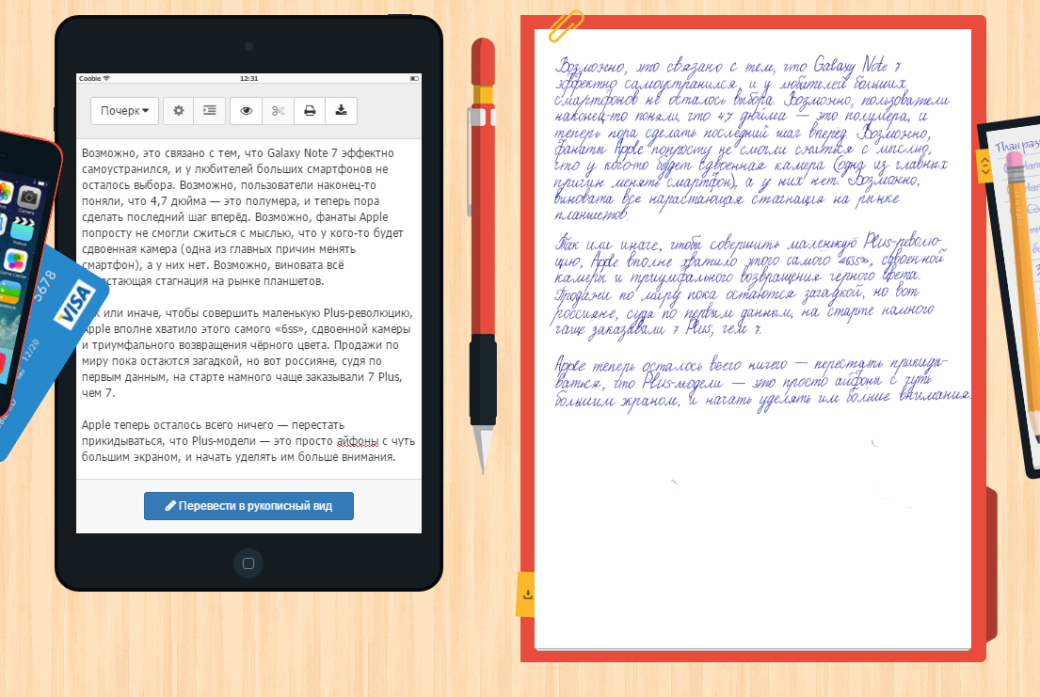 Coobie
12:31
Почерк
Возможно, это связано с тем, что Galaxy Note 7 эффектно
самоустранился, и у любителей больших смартфонов не
осталось выбора. Возможно, пользователи наконец-то
поняли, что 4,7 дюйма — это полумера, и теперь пора
сделать последний шаг вперёд. Возможно, фанаты Apple
попросту не смогли сжиться с мыслью, что у кого-то будет
сдвоенная камера (одна из главных причин менять
смартфон), а у них нет. Возможно, виновата всё
стагнация на рынке планшетов.
или иначе, чтобы совершить маленькую Plus-революцию,
Apple вполне хватило этого самого «6ss», сдвоенной камеры
и триумфального возвращения чёрного цвета. Продажи по
миру пока остаются загадкой, но вот россияне, судя по
первым данным, на старте намного чаще заказывали 7 Plus,
чем 7.
Apple теперь осталось всего ничего — перестать
прикидываться, что Plus-модели — это просто айфоны с чуть
большим экраном, и начать уделять им больше внимания.
Перевести в рукописный вид
5678
VISA
12/20
Возможно, это связано с тем, что Galaxy Note 7
эффектно самоустранился, и у любителей больших
смартфонов не осталось выбора. Возможно, пользователи
наконец-то поняли, что 4,7 дюйма — это полумера, и
теперь пора сделать последний шаг вперёд. Возможно,
фанаты Apple попросту не смогли сжиться с мыслью,
что у кого-то будет сдвоенная камера (одна из главных
причин менять смартфон), а у них нет. Возможно,
виновата всё нарастающая стагнация на рынке
планшетов.
Так или иначе, чтобы совершить маленькую Plus-револю-
цию, Apple вполне хватило этого самого «6ss», сдвоенной
камеры и триумфального возвращения чёрного цвета.
Продажи по миру пока остаются загадкой, но вот
россияне, судя по первым данным, на старте намного
чаще заказывали 7 Plus, чем 7.
Apple теперь осталось всего ничего — перестать прикиды-
ваться, что Plus-модели — это просто айфоны с чуть
большим экраном, и начать уделять им больше внимания.
План